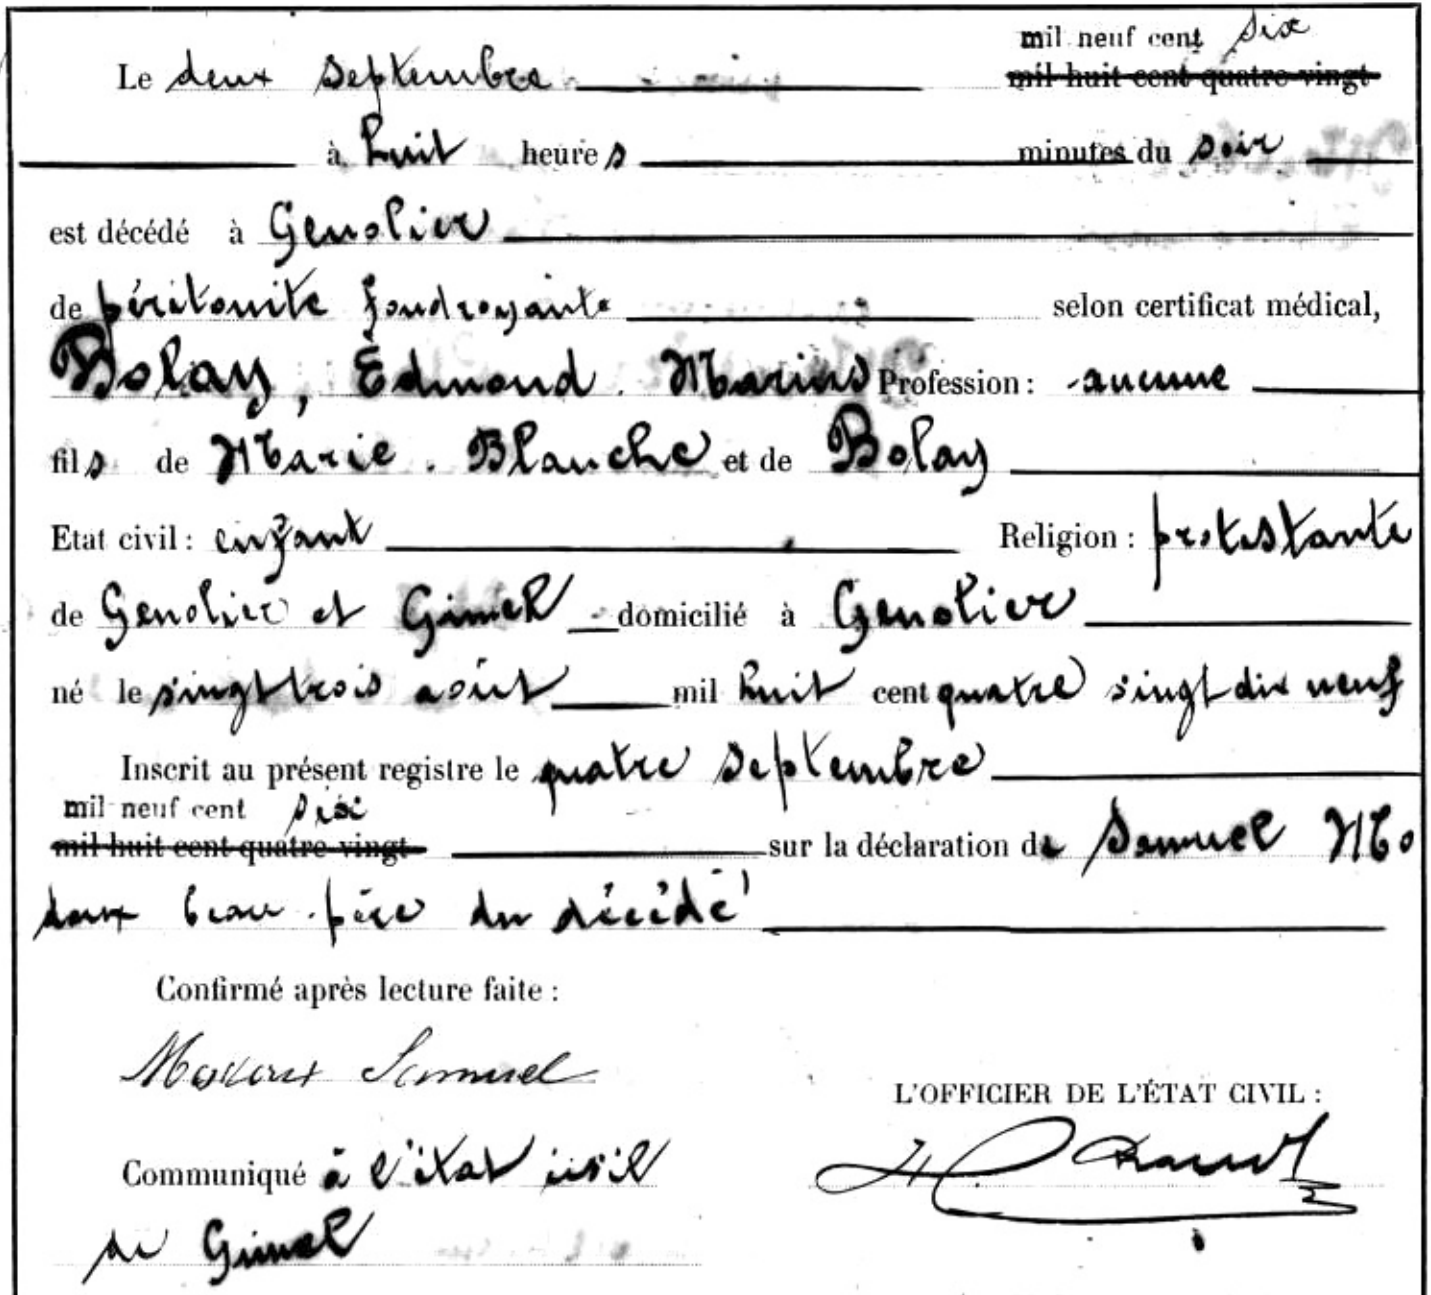 mil neuf cent six
Le deux septembre mil huit cent quatre-vingt
à huit heures minutes du soir
est décédé à Genolier
de péritonite foudroyante selon certificat médical,
Bolay, Edmond. Marius Profession: aucune
fils de Marie. Blanche et de Bolay
Etat civil: enfant Religion: protestante
de Genolier et Gimel domicilié à Genolier
né le vingt trois août mil huit cent quatre vingt dix neuf
Inscrit au présent registre le quatre septembre
mil neuf cent six
mil huit cent quatre-vingt sur la déclaration de Samuel Mo
doux beau-père du décédé
Confirmé après lecture faite:
Samuel
L'OFFICIER DE L'ÉTAT CIVIL:
Communiqué à l'état civil
de Gimel